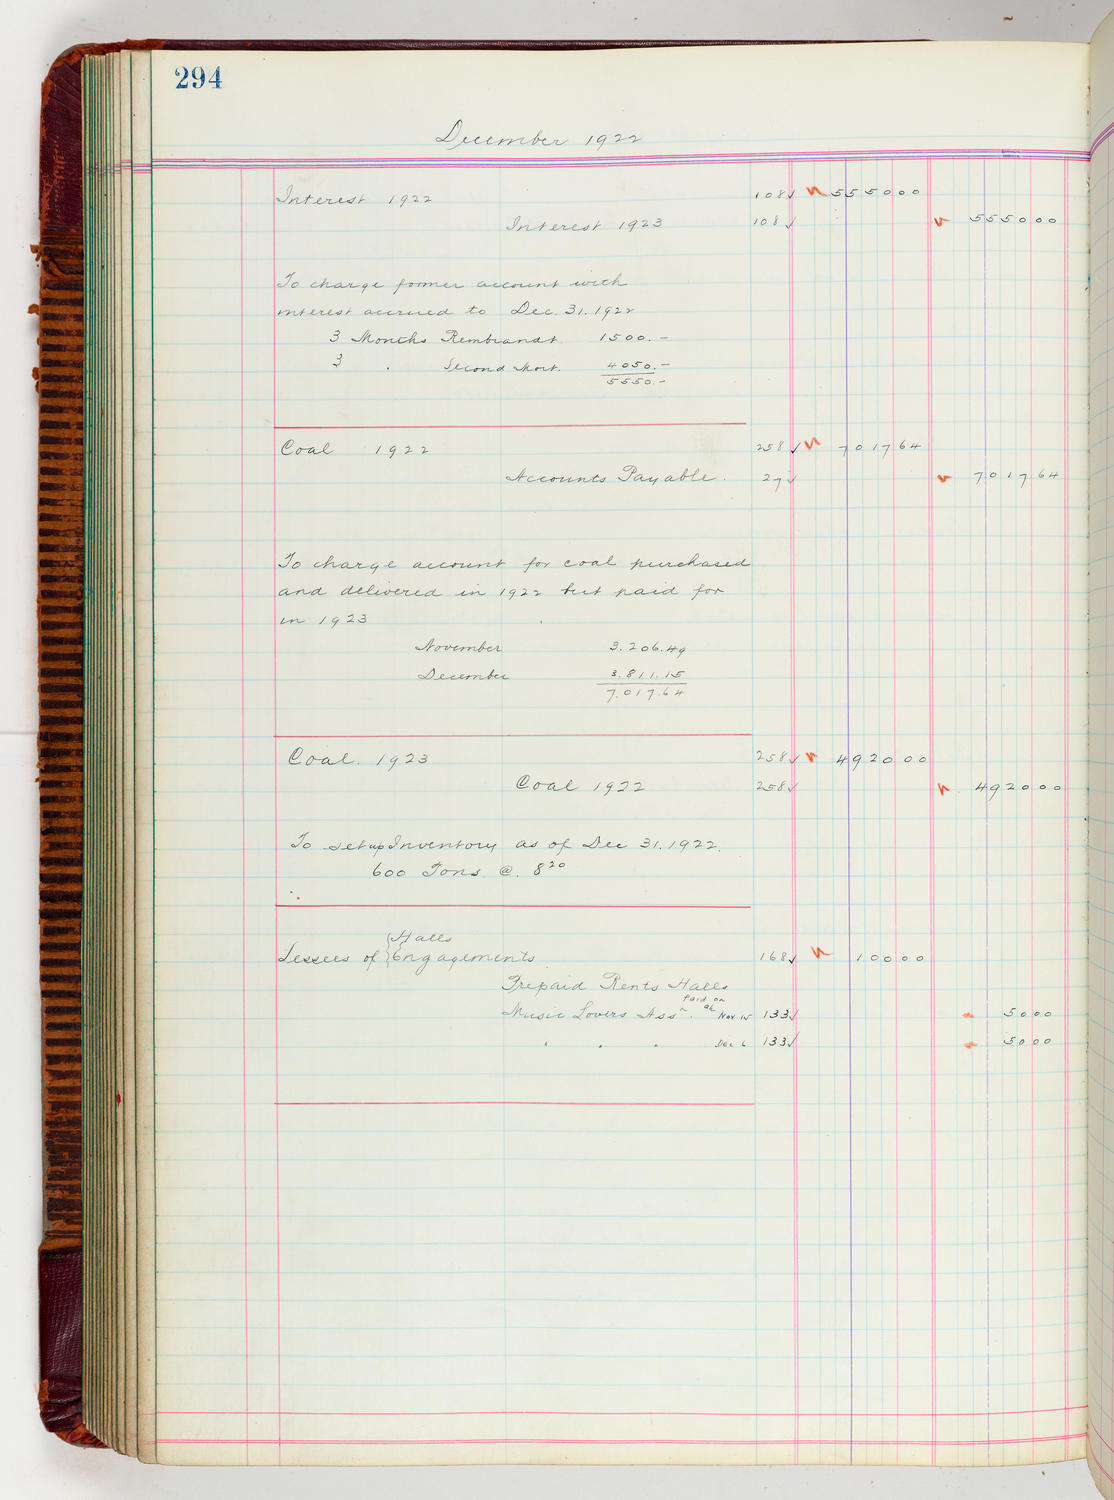 294
December 1922
Interest 1922 108 ✓ 5550 00
Interest 1923 108 ✓ 5550 00
To charge former account with
interest accrued to Dec. 31. 1922
3 Months Rembrandt 1500.-
3 " Second Mort. 4050.-
5550.-
Coal 1922 258 ✓ 7017 64
Accounts Payable. 27 ✓ 7017 64
To charge account for coal purchased
and delivered in 1922 but paid for
in 1923
November 3.206.49
December 3.811.15
7.017.64
Coal. 1923 258 ✓ 4920 00
Coal 1922 258 ✓ 4920 00
To set up Inventory as of Dec 31. 1922.
600 Tons @. 8 20
Halls
Lessees of Engagements 168 ✓ 100 00
Prepaid Rents Halls
Music Lovers Assn. Paid on a/c Nov 15 133 ✓ 50 00
" " " Dec 6 133 ✓ 50 00